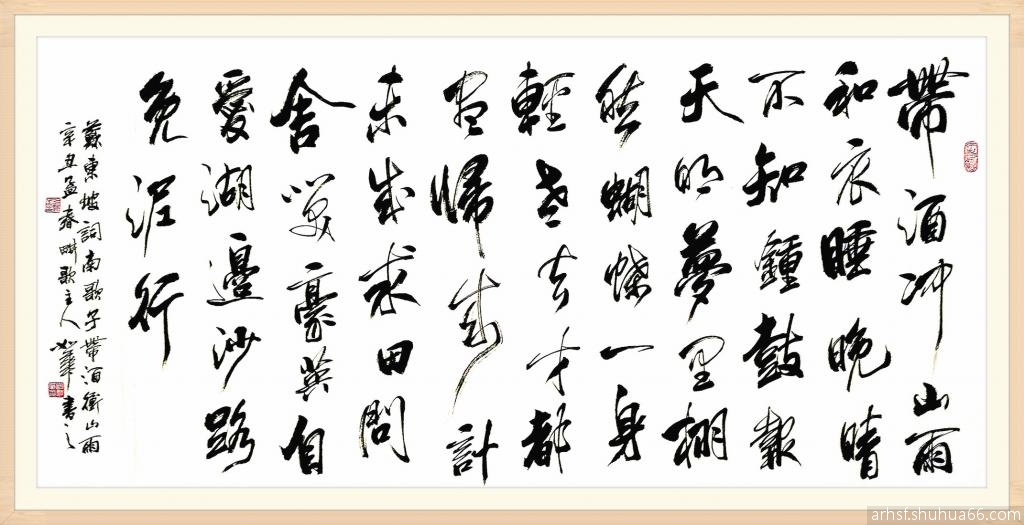 帶酒冲山雨
和衣睡晚晴
不知鍾鼓報
天明夢里栩
然蝴蝶一身
輕老去才都
盡歸來計
未成求田問
舍笑豪英自
愛湖邊沙路
免泥行
蘇東坡詞南歌子帶酒衝山雨
辛丑孟春畊歌主人華書之
arhsf.shuhua66.com